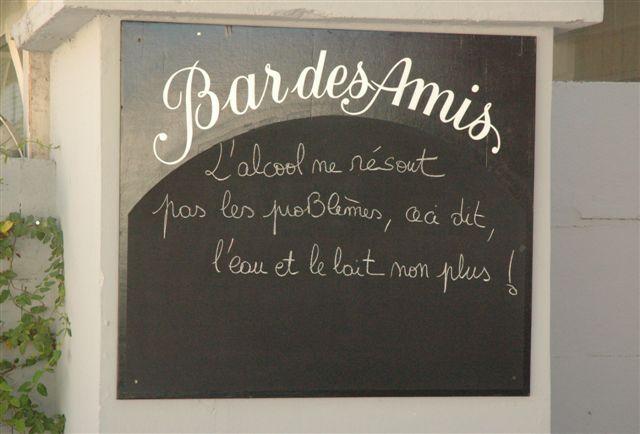 Bar des Amis
L'alcool ne résout
pas les problèmes, ceci dit,
l'eau et le lait non plus !